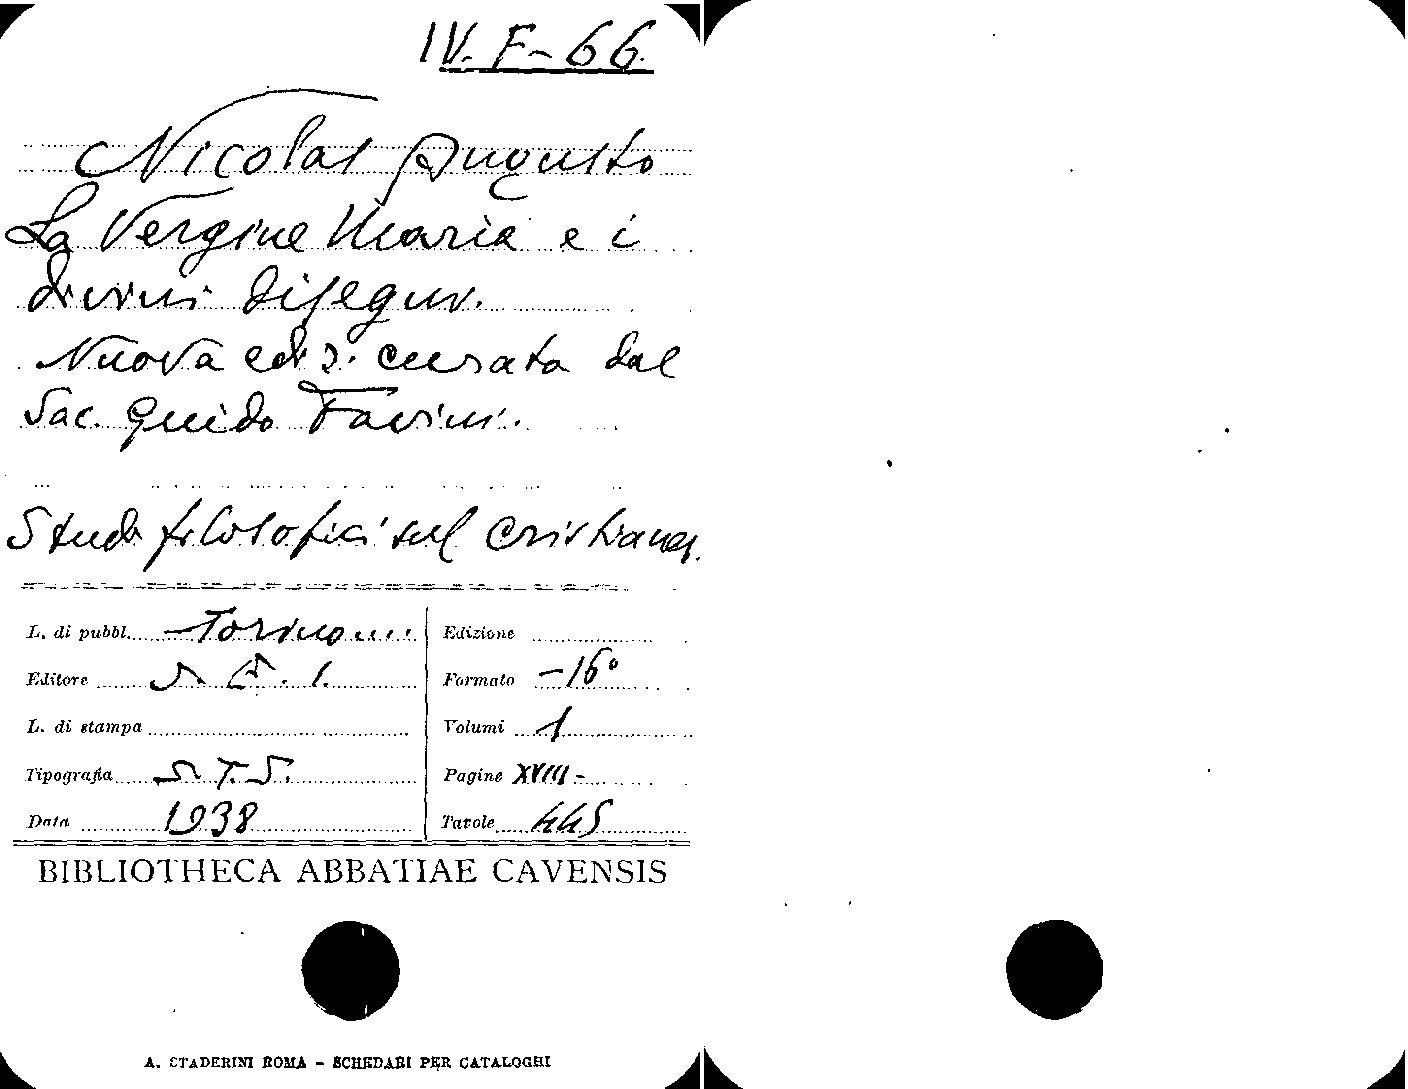 IV. F-66.
Nicolas Augusto
La Vergine Maria e i
divini disegni.
Nuova ediz. curata dal
Sac. Guido Favini.
Studi filosofici sul Cristianes.
L. di pubbl. Torino
Edizione
Editore S. E. I.
Formato -16°
L. di stampa
Volumi 1
Tipografia S. T. S.
Pagine XVIII-
Data 1938
Tavole 445
BIBLIOTHECA ABBATIAE CAVENSIS
A. STADERINI ROMA - SCHEDARI PER CATALOGHI